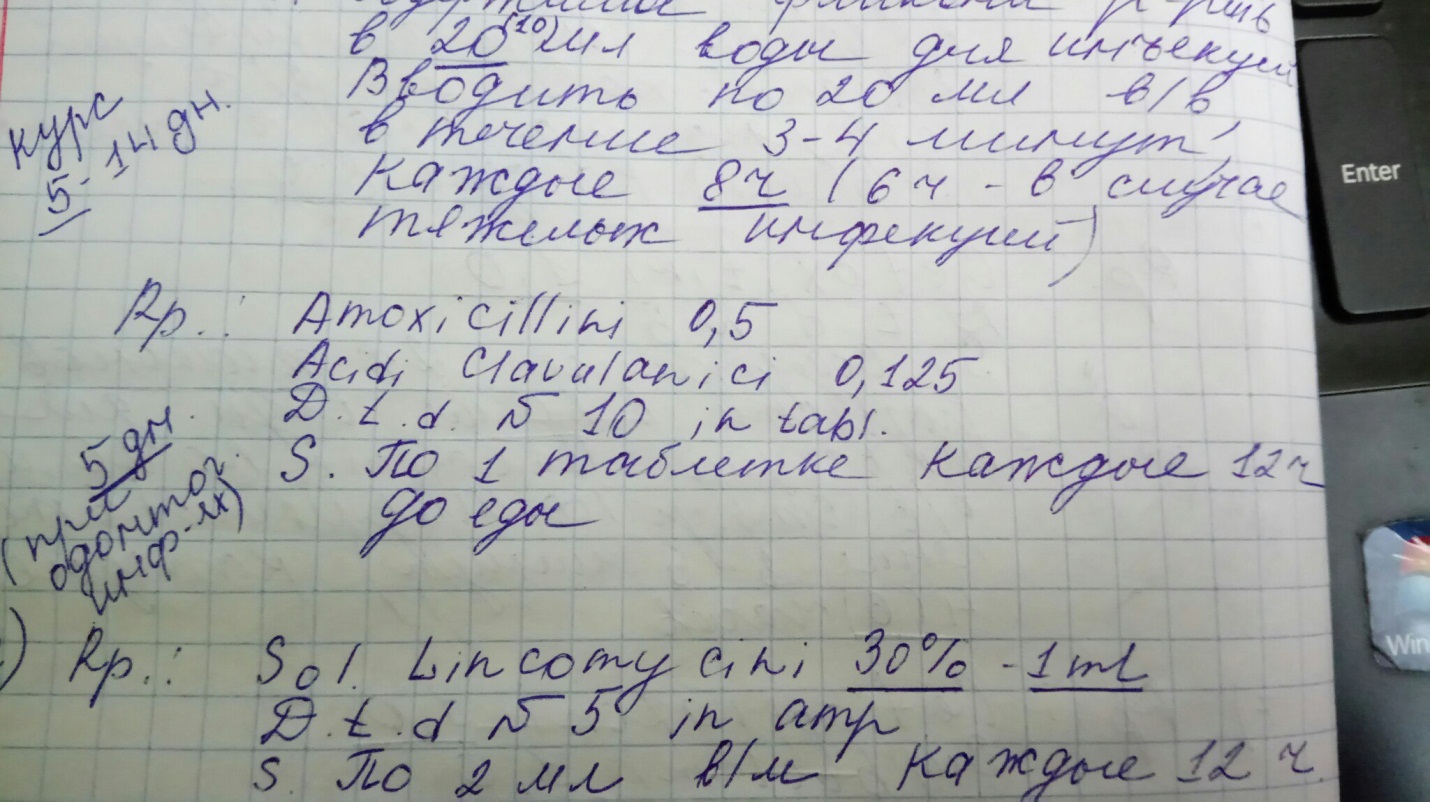 содержимое флакона р-рить
в 20 (10) мл воды для инъекций
Вводить по 20 мл в/в
в течение 3-4 минут,
каждые 8ч (6ч - в случае
тяжелых инфекций)
курс
5-14 дн.
Rp.: Amoxicillini 0,5
Acidi Clavulanici 0,125
D.t.d. N 10 in tabl.
S. По 1 таблетке каждые 12ч
до еды
5 дн.
(при
одонтог.
инф-ях)
Rp.: Sol. Lincomycini 30% - 1ml
D.t.d N 5 in amp
S. По 2 мл в/м каждые 12 ч.
Enter
Win